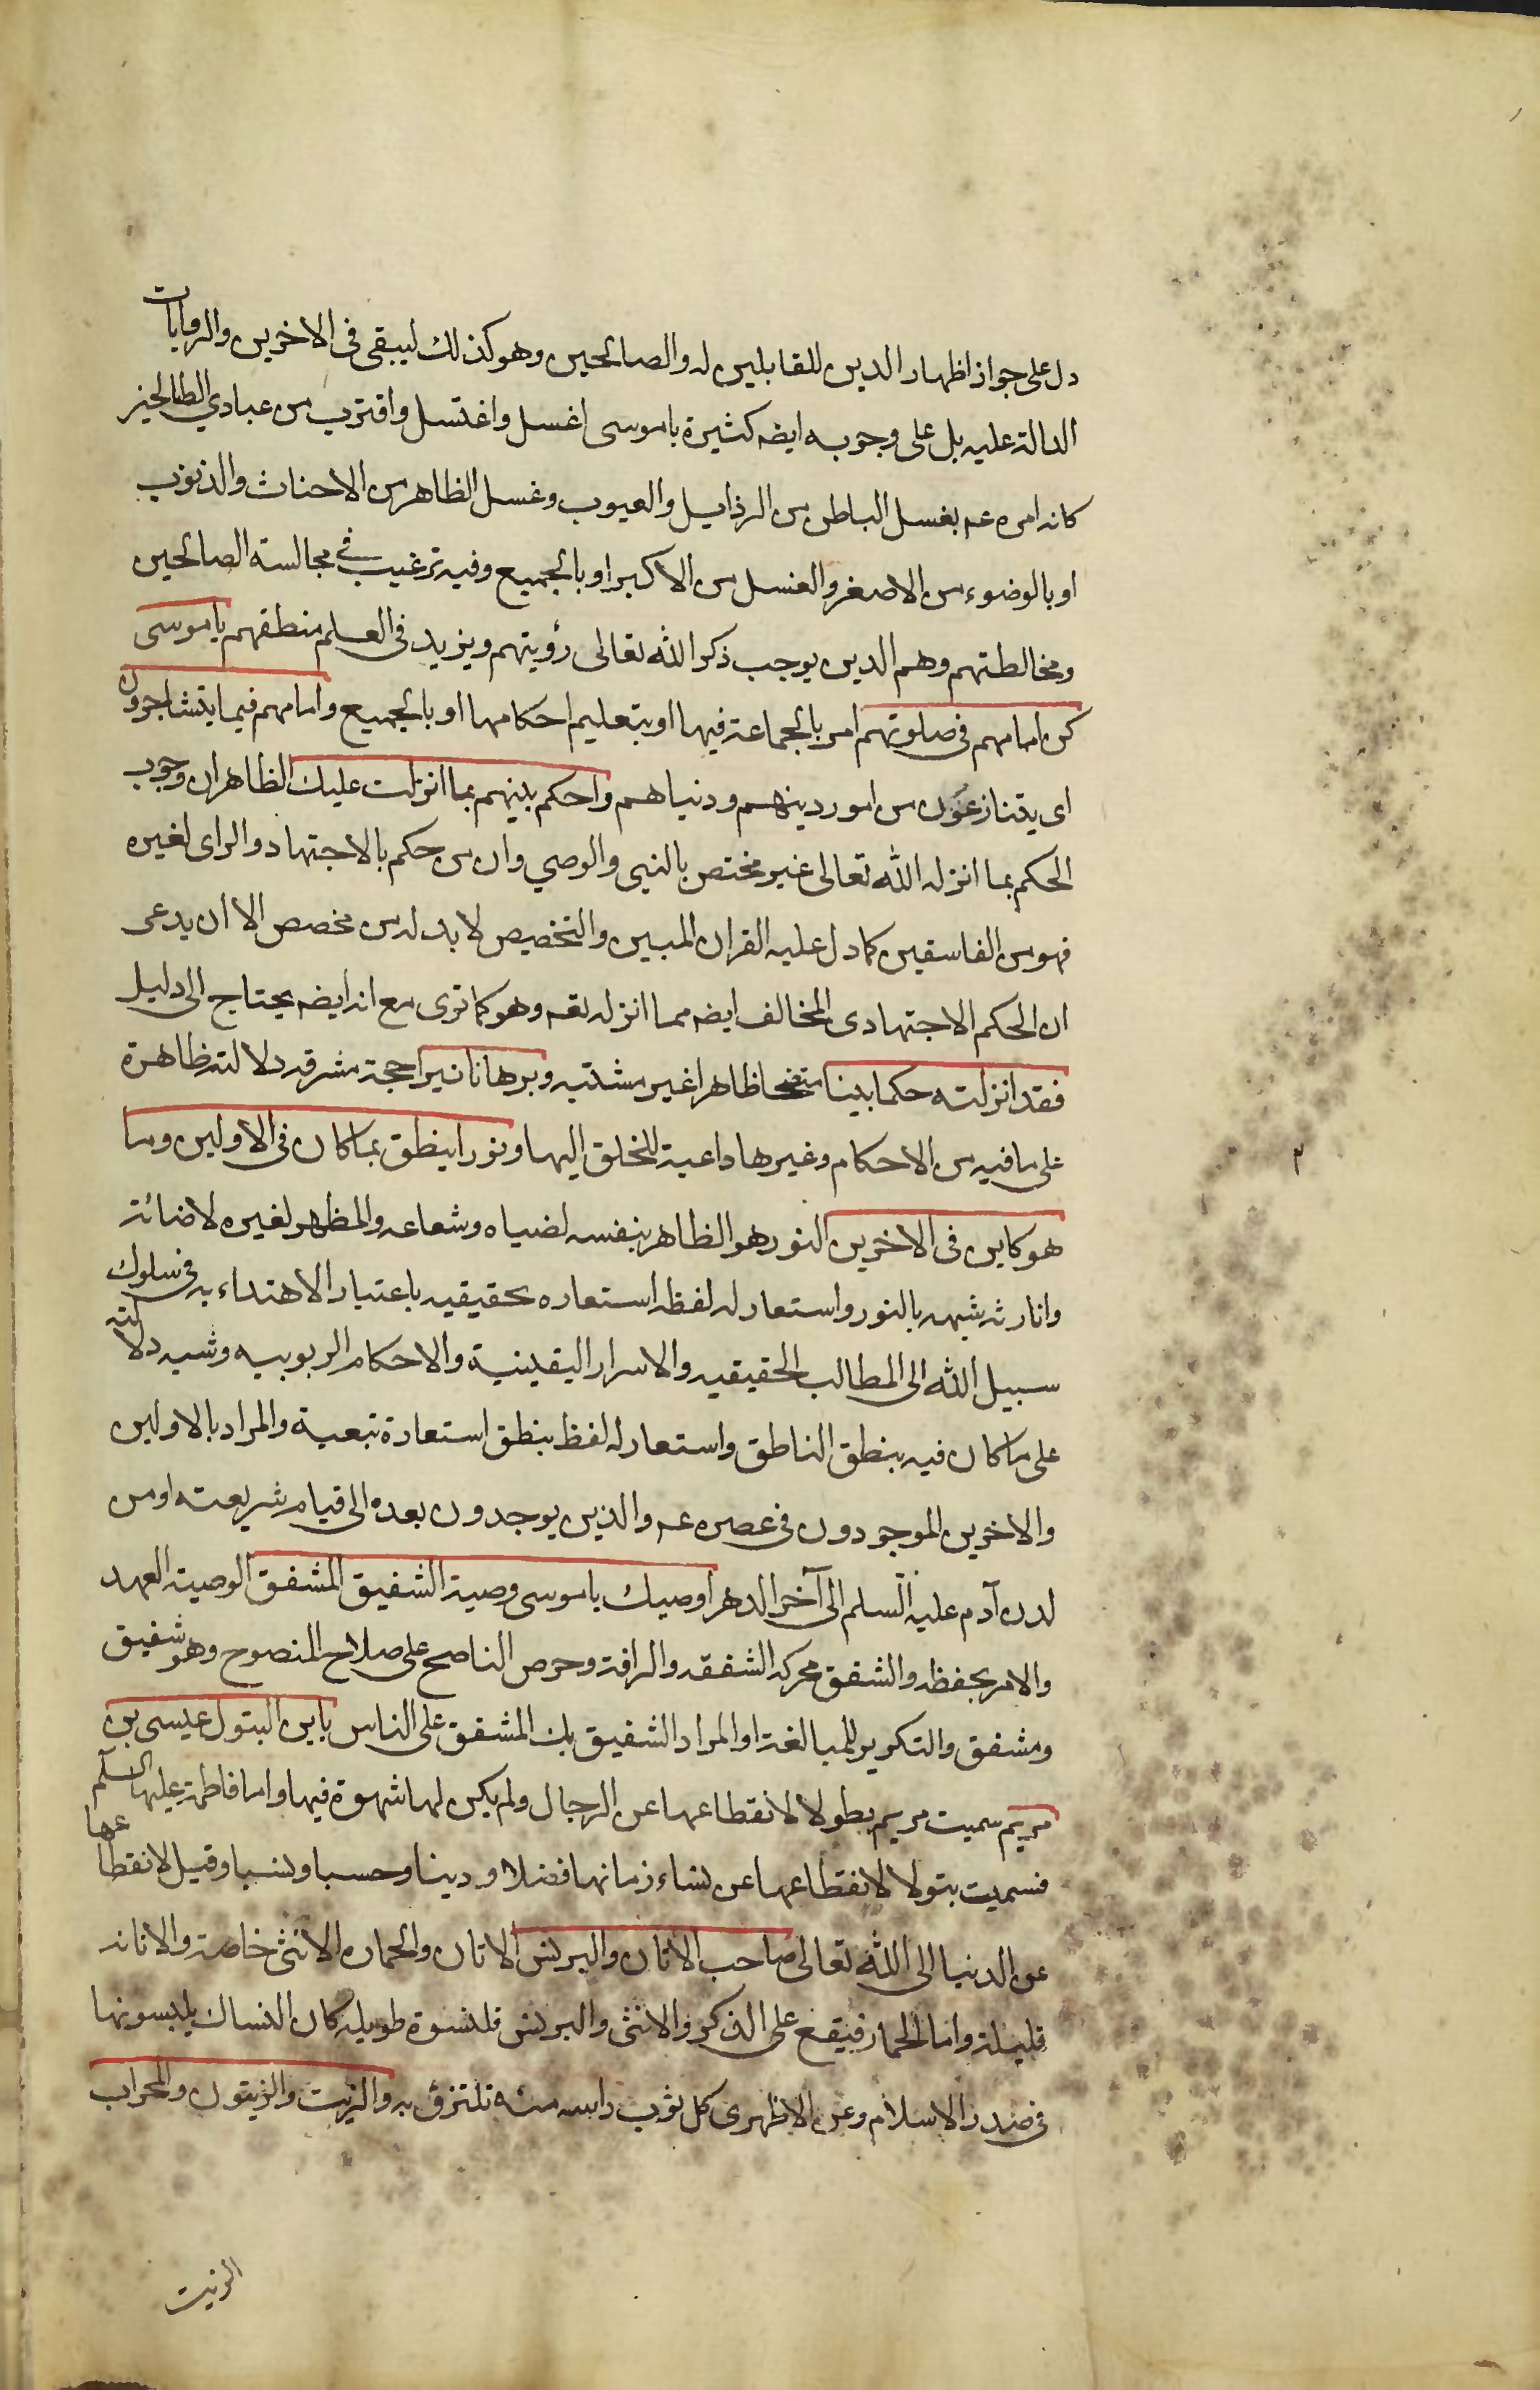 دل على جواز اظهار الدين للقابلين له والصالحين وهو كذلك ليبقى فى الاخرين والروايات
الدالة عليه بل على وجوبه ايضه كثيرة ياموسى اغسل واغتسل واقترب من عبادي الصالحين
كانه امره عم بغسل الباطن من الرذايل والعيوب وغسل الظاهر من الاحناث والذنوب
او بالوضوء من الاصغر والغسل من الاكبر او بالجميع وفيه ترغيب فى مجالسته الصالحين
ومخالطتهم وهم الدين يوجب ذكر الله تعالى رؤيتهم ويزيد فى العلم منطقهم ياموسى
كن امامهم فى صلوتهم امر بالجماعة فيها او بتعليم احكامها او بالجميع وامامهم فيما يتشاجرون
اى يتنازعون من امور دينهم ودنياهم واحكم بينهم بما انزلت عليك الظاهران وجوب
الحكم بما انزله الله تعالى غير مختص بالنبى والوصي وان من حكم بالاجتهاد والراى لغيره
فهو من الفاسقين كما دل عليه القران المبين والتخصيص لا بد له من مخصص الا ان يدعى
ان الحكم الاجتهادى المخالف ايضه مما انزله تعه وهو كما ترى مع انه ايضه يحتاج الى دليل
فقد انزلته حكما بينا متضحا ظاهرا غير مشتبه وبرهانا نيرا حجة مشرقه دلالته ظاهرة
على ما فيه من الاحكام وغيرها داعية للخلق اليها ونورا ينطق بما كان فى الاولين وما
هو كاين فى الاخرين النور هو الظاهر بنفسه لضياه وشعاعه والمظهر لغيره لاضائته
وانارته شبهه بالنور واستعار له لفظه استعاره تحقيقيه باعتبار الاهتداء به فى سلوك
سبيل الله الى المطالب الحقيقيه والاسرار اليقينية والاحكام الربوبيه وشبه دلالته
على ما كان فيه بنطق الناطق واستعار له لفظ ينطق استعارة تبعية والمراد بالاولين
والاخرين الموجودون فى عصره عم والذين يوجدون بعده الى قيام شريعته او من
لدن آدم عليه السلم الى آخر الدهر اوصيك ياموسى وصية الشفيق المشفق الوصية العهد
والامر بحفظه والشفق محركه الشفقه والرافة وحرص الناصح على صلاح المنصوح وهو شفيق
ومشفق والتكرير للمبالغة او المراد الشفيق بك المشفق على الناس بابن البتول عيسى بن
مريم سميت مريم بطولا لانقطاعها عن الرجال ولم يكن لها شهوة فيها واما فاطمة عليها السلم
فسميت بتولا لانقطاعها عن نساء زمانها فضلا ودينا وحسبا ونسبا وقيل لانقطاعها
عن الدنيا الى الله تعالى صاحب الاتان والبرنس الاتان والحماره الانثى خاصة والاتانه
قليلة واما الحمار فيقع على الذكر والانثى والبرنس قلنسوة طويله كان النساك يلبسونها
فى صدر الاسلام وعن الازهرى كل ثوب راسه منه تلتزق به والزيت والزيتون والمحراب
الزيت